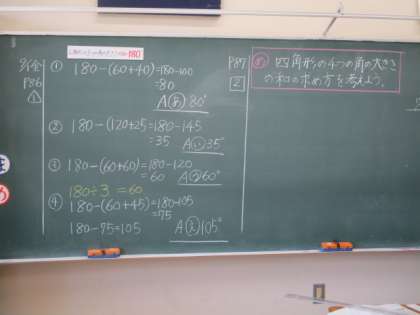 P86
①
① 180-(60+40)=180-100
=80
A(あ)80°
② 180-(120+25=180-145
=35 A(い)35°
③ 180-(60+60)=180-120
=60 A(う)60°
180÷3=60
④ 180-(60+45)=180-105
=75
180-75=105 A(え)105°
P87
2
め 四角形の4つの角の大きさ
の和の求め方を考えよう。